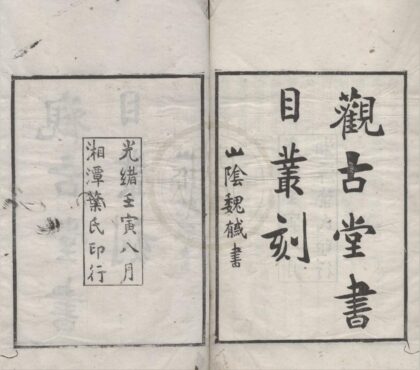 觀古堂書
目叢刻
山陰魏榝書
光緒壬寅八月
湘潭葉氏印行